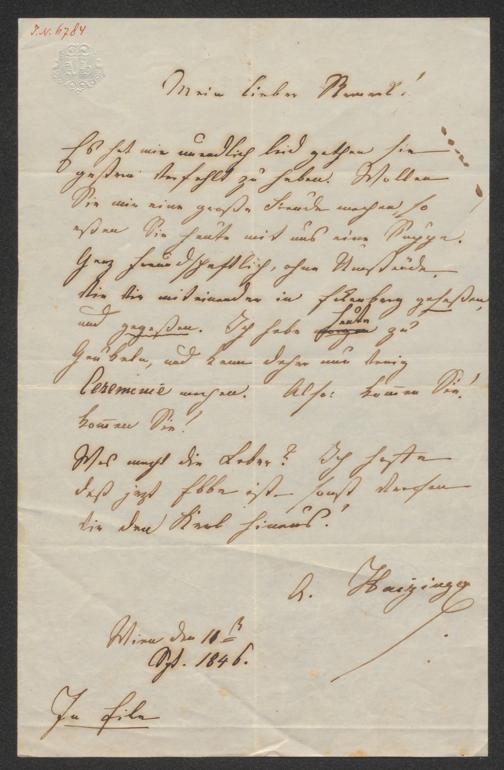 I.N. 6784
Mein lieber
Es hat mir unendlich leid gethan Sie
gestern verfehlt zu haben. Wollen
Sie mir eine große Freude machen so
eßen Sie heute mit uns eine Suppe.
Ganz freundschaftlich, ohne Umstände.
wie wir miteinander in geseßen,
und gegeßen. Ich habe heute zu
und kann daher nur wenig
Ceremonie machen. Also: kommen Sie!
kommen Sie!
Was macht die Leber? Ich hoffe
daß jetzt Ebbe ist, sonst werfen
wir den Kerl hinaus!
A. Haizinger
Wien den 10
Spt. 1846.
In Eile